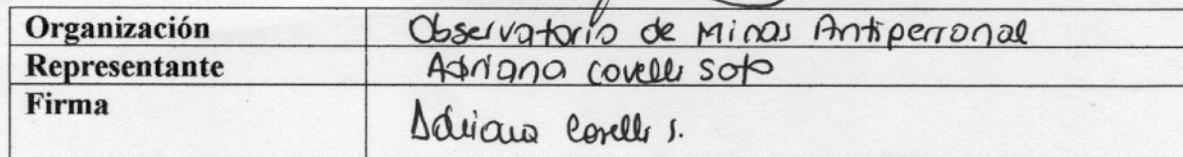 Organización Observatorio de Minas Antipersonal
Representante Adriana Covelli Soto
Firma Adriana Covelli S.